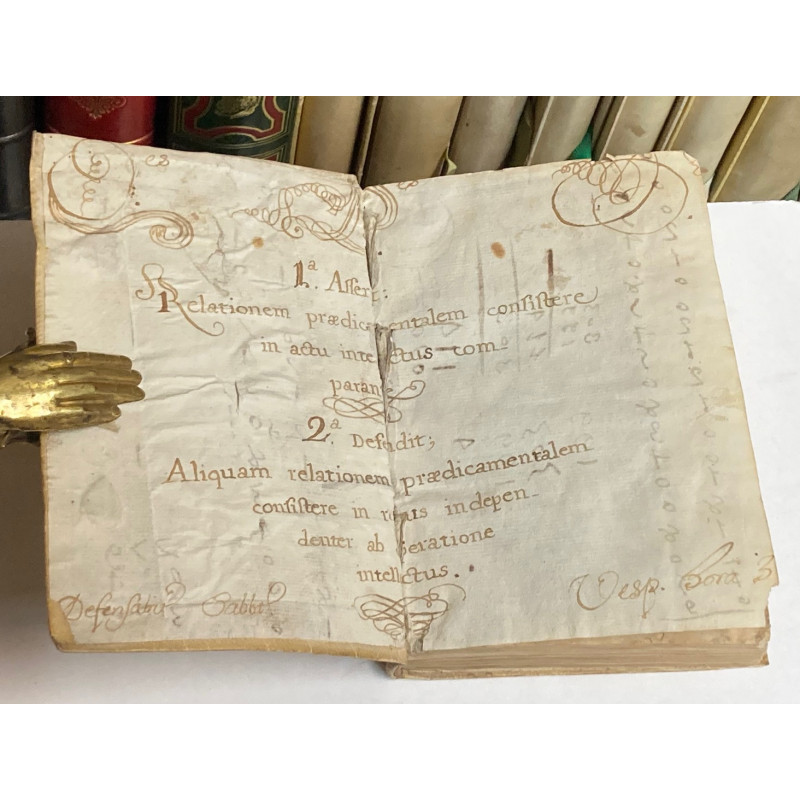 1.ª Assert:
Relationem prædicamentalem consistere
in actu intellectus com-
parante
2.ª Defendit;
Aliquam relationem prædicamentalem
consistere in rebus indepen-
denter ab operatione
intellectus.
Vesp. hora 3